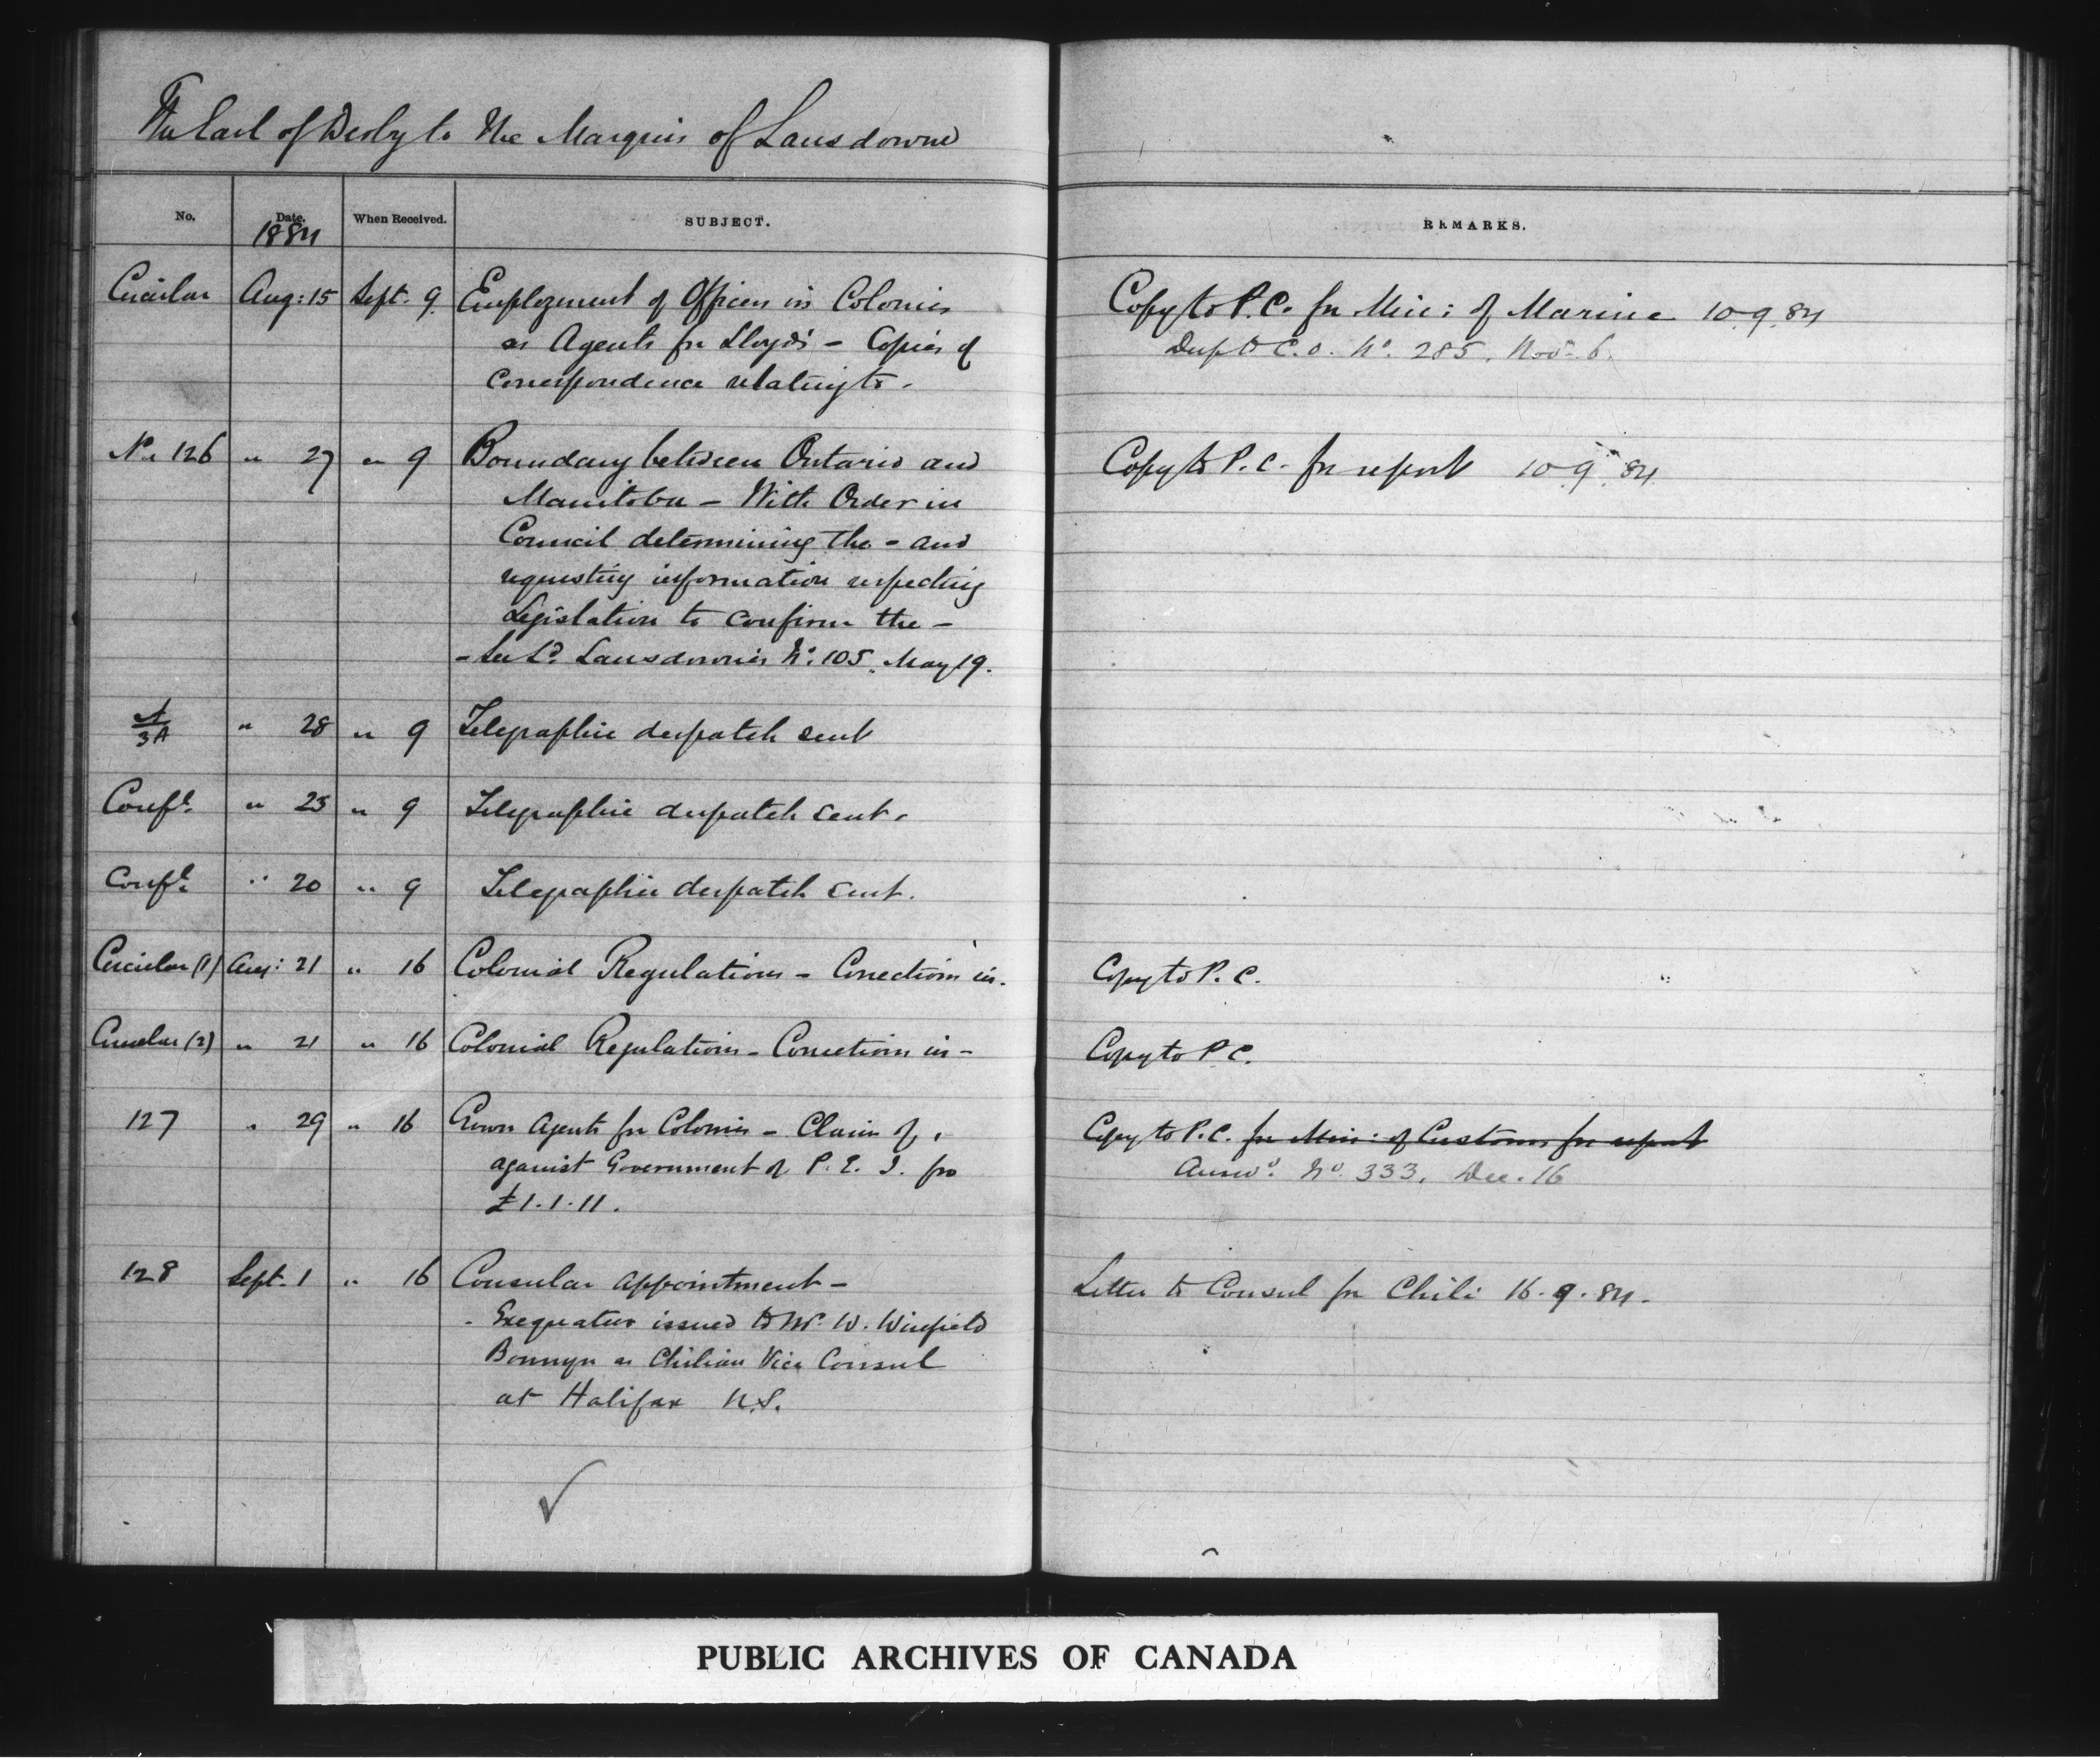 The Earl of Derby to The Marquis of Lansdowne
No. Date. When Received. SUBJECT. REMARKS.
1884
Circular Aug: 15 Sept. 9. Employment of Officers in Colonies Copy to P.C. for Min: of Marine 10.9.84
as Agents for Lloyd's - Copies of Desp to C.O. No. 285. Nov. 6.
Correspondence relating to.
No 126 " 27 " 9 Boundary between Ontario and Copy to P.C. for report 10.9.84
Manitoba - With Order in
Council determining the - and
requesting information respecting
Legislation to confirm the -
- See Ld. Lansdowne's No. 105. May 19.
A/3A " 28 " 9 Telegraphic despatch sent
Confl. " 25 " 9 Telegraphic despatch sent.
Confl. " 20 " 9 Telegraphic despatch sent.
Circular (1) Aug: 21 " 16 Colonial Regulations - Corrections in. Copy to P.C.
Circular (2) " 21 " 16 Colonial Regulations - Corrections in - Copy to P.C.
127 " 29 " 16 Crown Agents for Colonies - Claim of, Copy to P.C. for Min: of Customs for report
against Government of P.E.I. for Answd. No. 333. Dec. 16
£1.1.11.
128 Sept. 1 " 16 Consular Appointment - Letter to Consul for Chili 16.9.84.
- Exequatur issued to Mr. W. Winfield
Bonnyn as Chilian Vice Consul
at Halifax N.S.
PUBLIC ARCHIVES OF CANADA